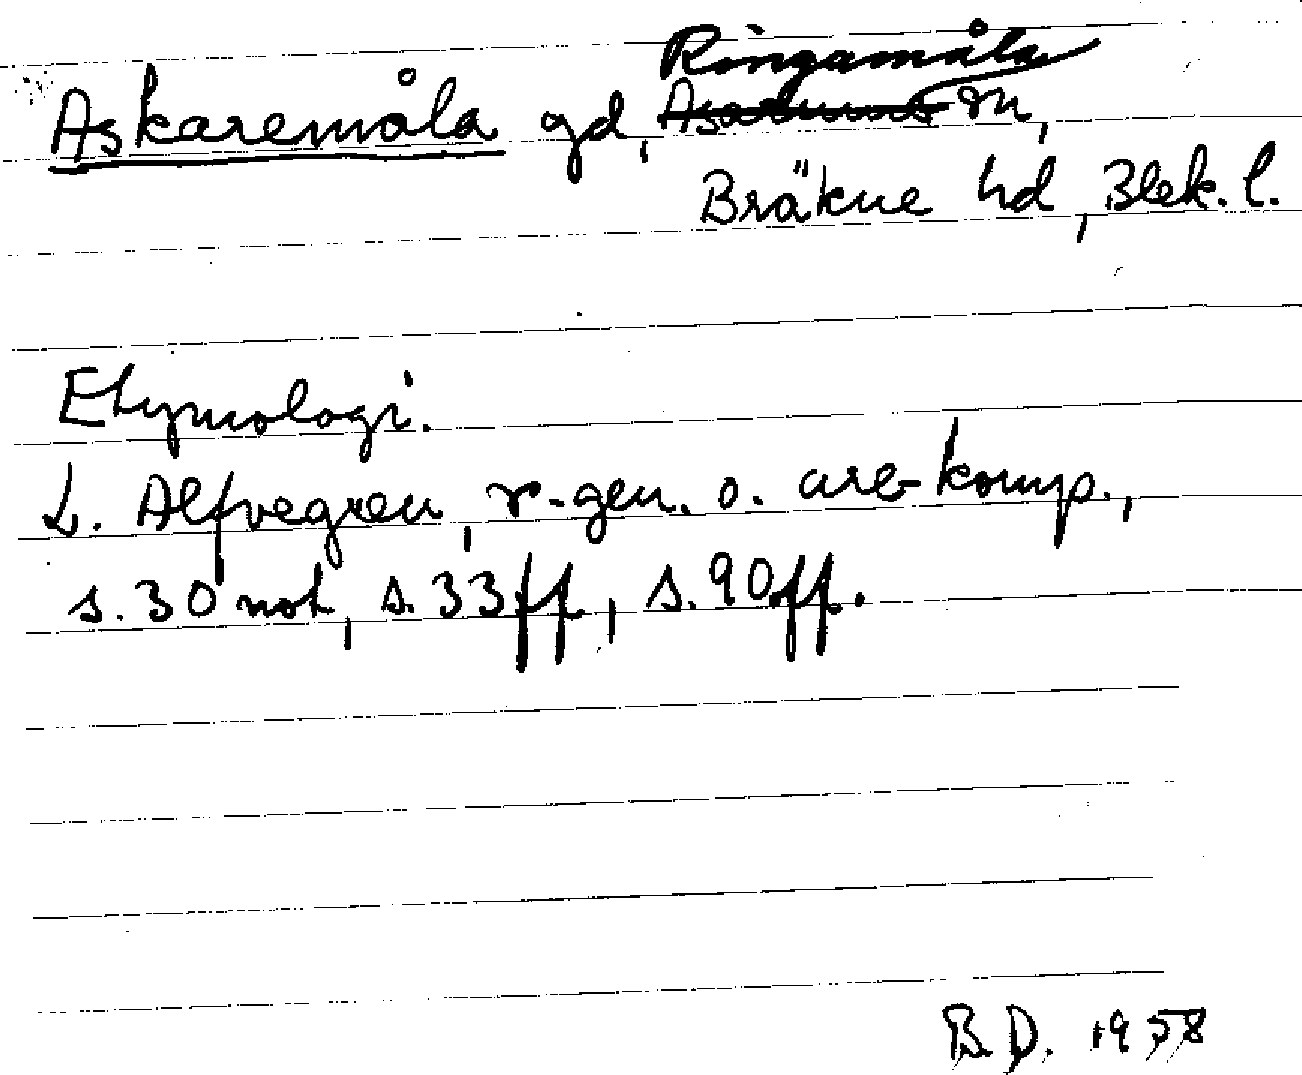 Askaremåla gd, Ringamåla sn,
Bräkne hd, Blek. l.
Etymologi.
L. Alfvegren, r-gen. o. are-komp.,
s. 30 not, s. 33 ff, s. 90 ff.
B.D. 1958